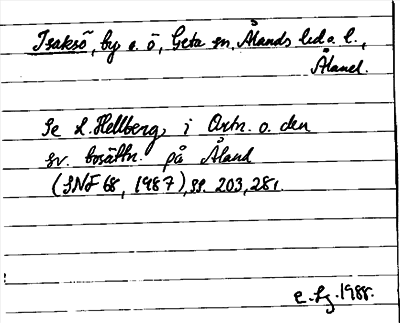 Isaksö, by o. ö, Geta sn, Ålands hd o. l.,
Åland.
Se L. Hellberg, i Ortn. o. den
sv. bosättn. på Åland
(SNF 68, 1987), ss. 203, 281.
1988.